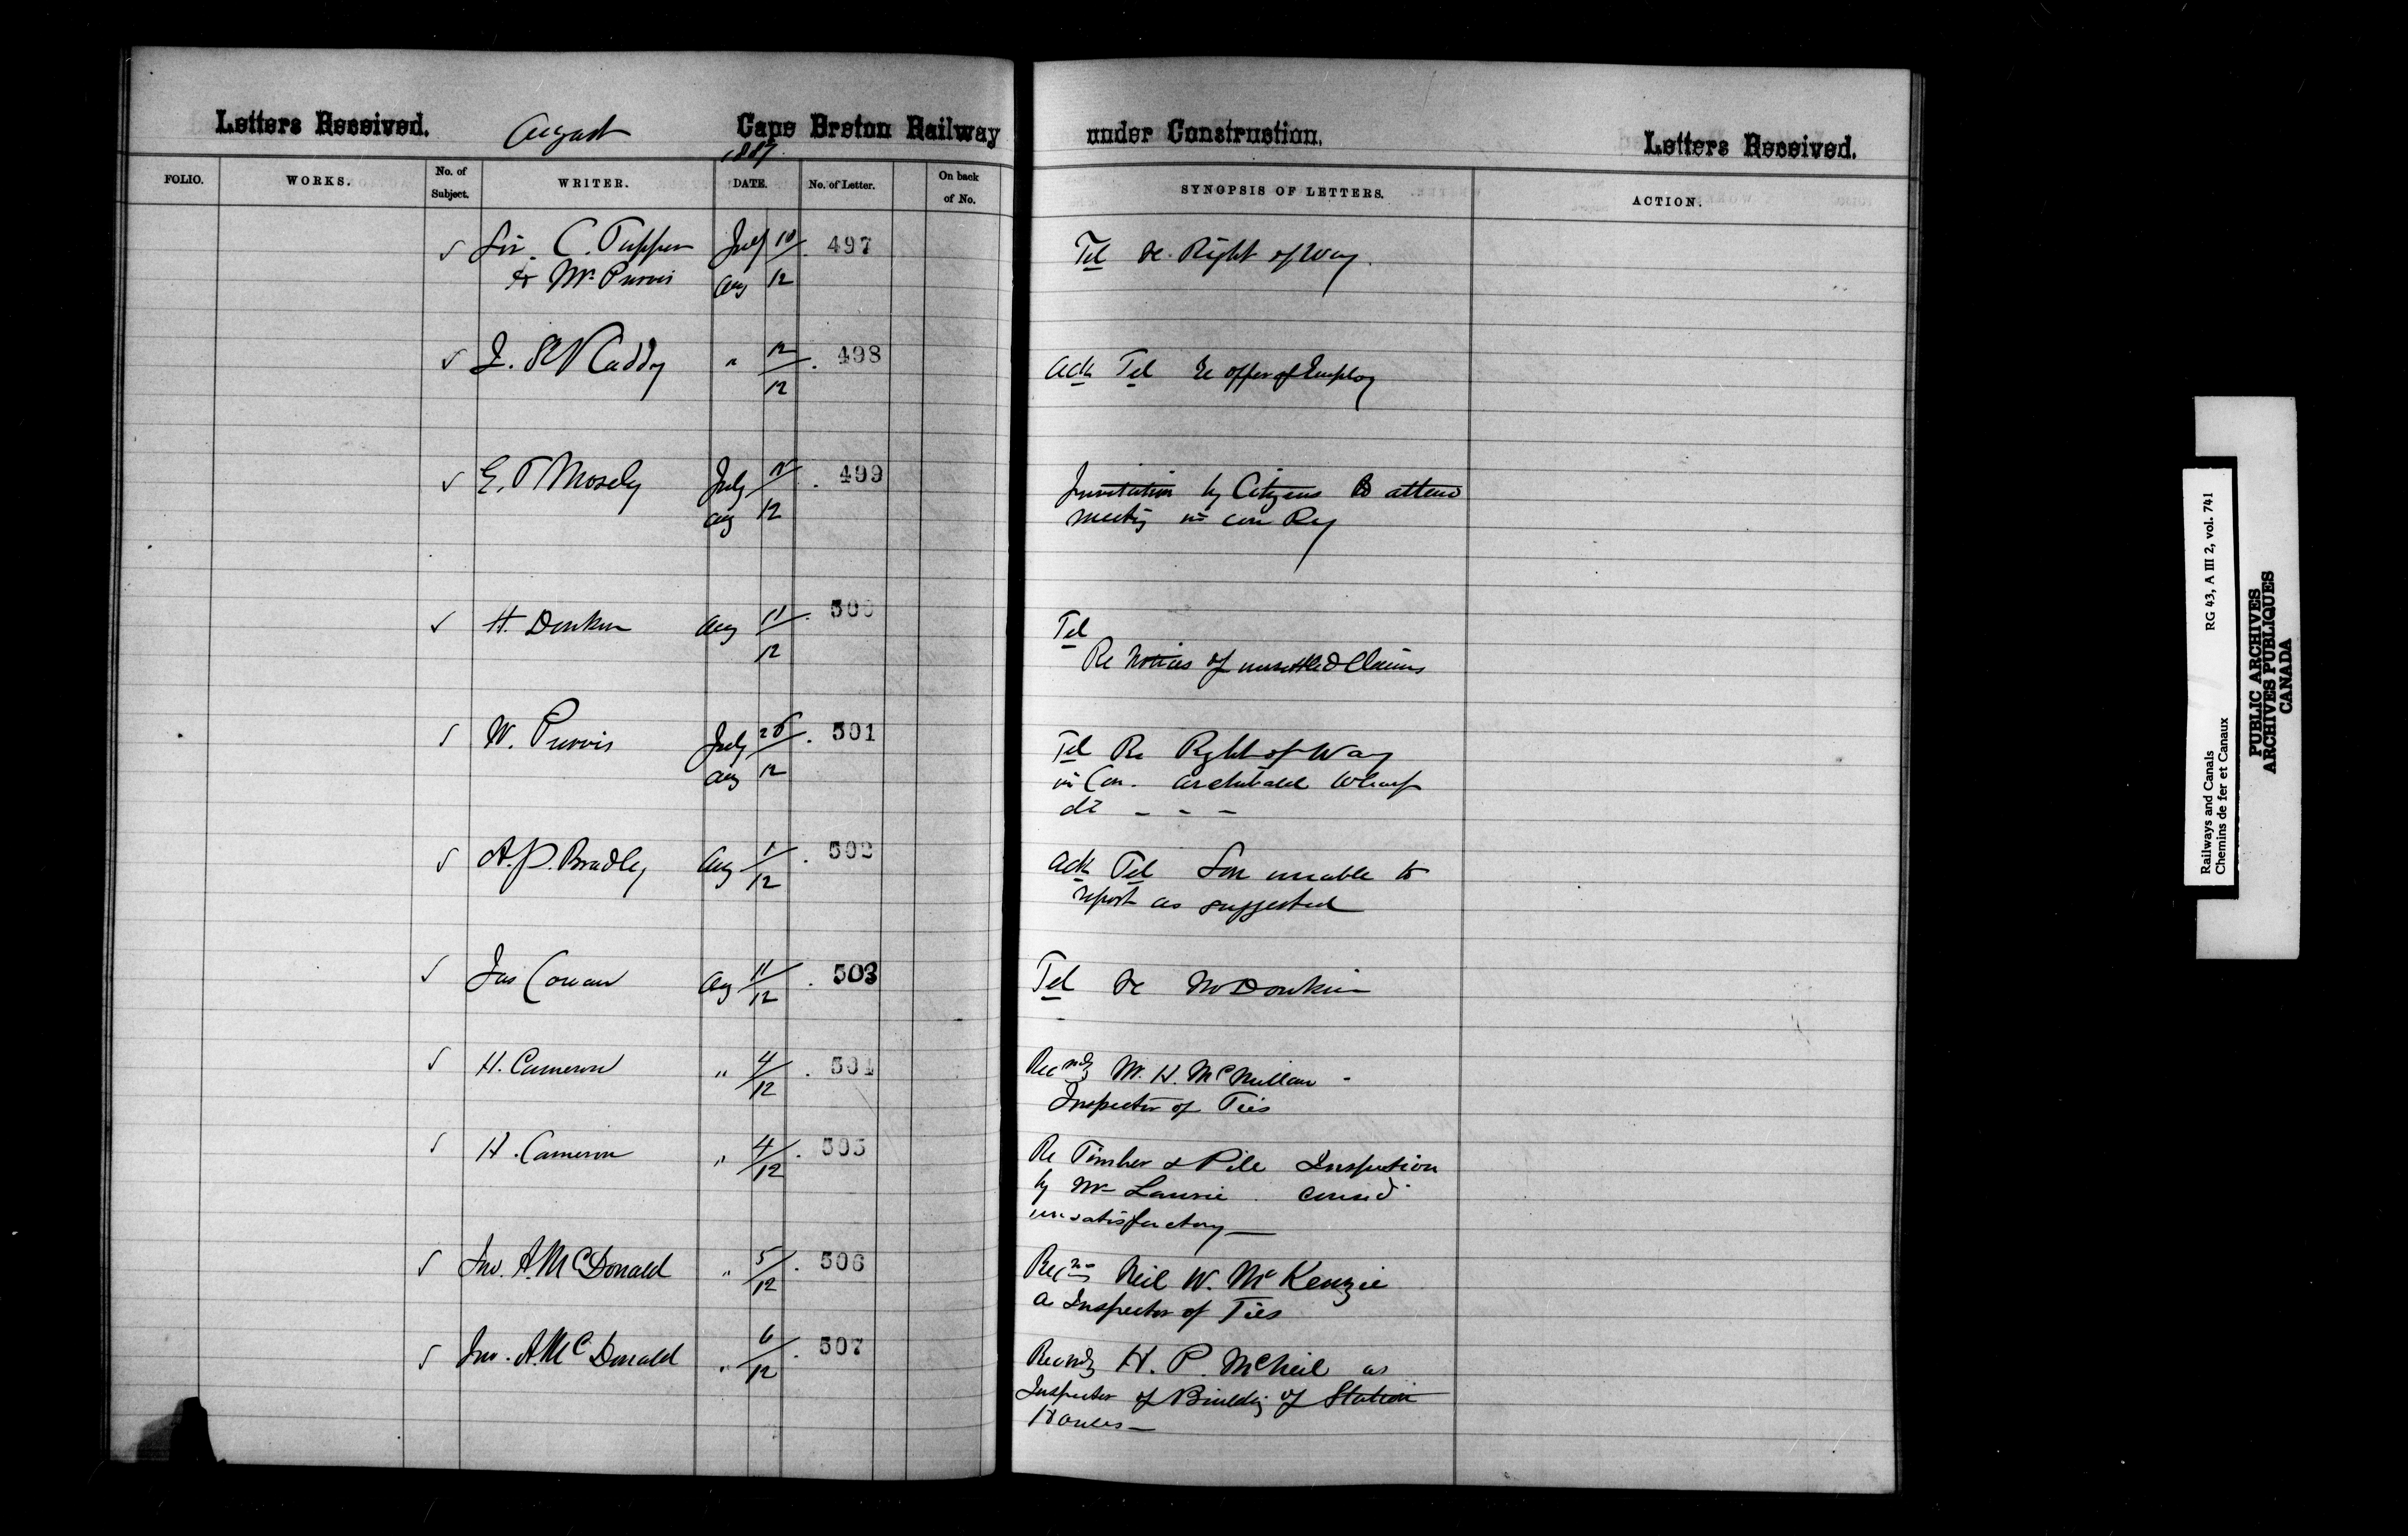 Letters Received. August Cape Breton Railway under Construction. Letters Received.
1887
FOLIO. WORKS. No. of Subject. WRITER. DATE. No. of Letter. On back of No. SYNOPSIS OF LETTERS. ACTION.
Sir. C. Tupper July 10 497 Tel re Right of Way.
& Mr. Purvis Aug 12
J. St V Caddy " 12 498 Ack Tel re offer of Employ
12
E. T Mosely July 499 Invitation by Citizens to attend
Aug 12 meeting in con Ry
H. Donkin Aug 11 500 Tel
12 Re Notices of unsettled Claims
W. Purvis July 26 501 Tel Re Right of Way
Aug 12 in Con. Archibald Wharf
do - - -
A. P. Bradley Aug 1 502 Ack Tel Son unable to
12 report as suggested
Jas Cowan Aug 11 503 Tel re Mr Donkin
12
H. Cameron " 4 504 Recmdg Mr. H. McMillan -
12 Inspector of Ties
H. Cameron " 4 505 Re Timber & Pile Inspection
12 by Mr Laurie consd
unsatisfactory
Jno. A. McDonald " 5 506 Recm Neil W. McKenzie
12 as Inspector of Ties
Jno. A. McDonald " 6 507 Recmdg H. P. McNeil as
12 Inspector of Buildg of Station
Houses
Railways and Canals RG 43, A III 2, vol. 741
Chemins de fer et Canaux
PUBLIC ARCHIVES
ARCHIVES PUBLIQUES
CANADA